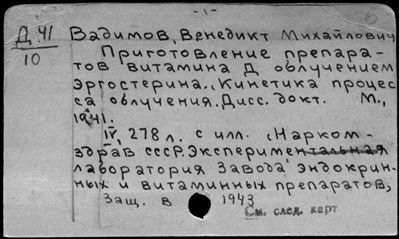 -1-
6
Д.41 Вадимов, Венедикт Михайлович
10
Приготовление препара-
тов витамина Д облучением
эргостерина. Кинетика процес-
са облучения. Дисс. докт. М.,
1941.
IV, 278 л. с илл. (Нарком-
здрав СССР. Экспериментальная
лаборатория Завода эндокрин-
ных и витаминных препаратов,
Защ. в 1943
См. след. карт